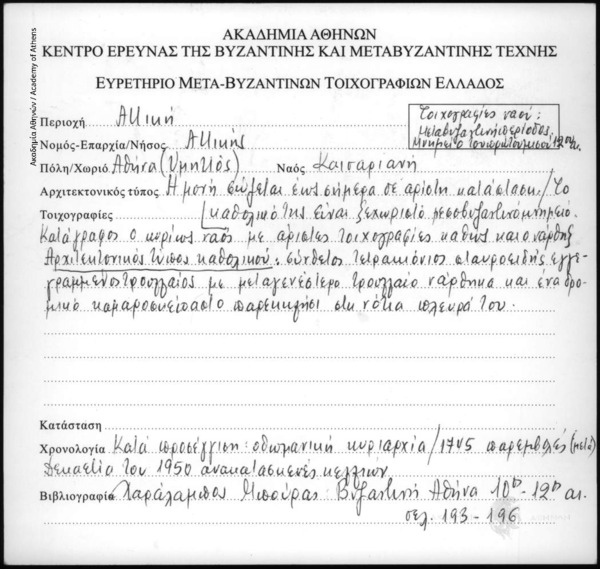 Ακαδημία Αθηνών / Academy of Athens
ΑΚΑΔΗΜΙΑ ΑΘΗΝΩΝ
ΚΕΝΤΡΟ ΕΡΕΥΝΑΣ ΤΗΣ ΒΥΖΑΝΤΙΝΗΣ ΚΑΙ ΜΕΤΑΒΥΖΑΝΤΙΝΗΣ ΤΕΧΝΗΣ
ΕΥΡΕΤΗΡΙΟ ΜΕΤΑ-ΒΥΖΑΝΤΙΝΩΝ ΤΟΙΧΟΓΡΑΦΙΩΝ ΕΛΛΑΔΟΣ
Τοιχογραφίες ναού:
Μεταβυζαντινή περίοδος
Μνημείο του πρώτου μισού 12ου αι.
Περιοχή Αττική
Νομός-Επαρχία/Νήσος Αττικής
Πόλη/Χωριό Αθήνα (Υμηττός) Ναός Καισαριανή
Αρχιτεκτονικός τύπος Η μονή σώζεται έως σήμερα σε άριστη κατάσταση. / Το
Τοιχογραφίες καθολικό της είναι ξεχωριστό μεσοβυζαντινό μνημείο.
Κατάγραφος ο κυρίως ναός με άριστες τοιχογραφίες καθώς και ο νάρθηξ
Αρχιτεκτονικός τύπος καθολικού: σύνθετος τετρακιόνιος σταυροειδής εγγε-
γραμμένος τρουλλαίος με μεταγενέστερο τρουλλαίο νάρθηκα και ένα δρο-
μικό καμαροσκέπαστο παρεκκλήσι στη νότια πλευρά του.
Κατάσταση
Χρονολογία Κατά προσέγγιση: οθωμανική κυριαρχία / 1745 παρεμβολές (μετά)
Δεκαετία του 1950 ανακατασκευές κελλιών
Βιβλιογραφία Χαράλαμπος Μπούρας: Βυζαντινή Αθήνα 10ος - 12ος αι.
σελ. 193 - 196